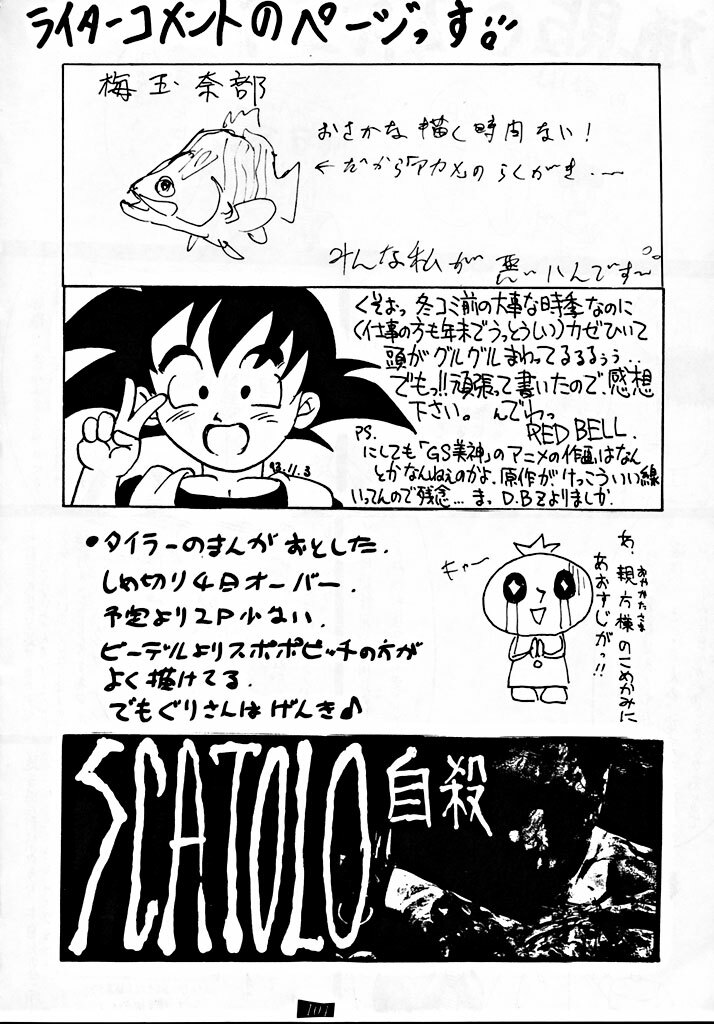 ライターコメントのページっす!!
梅玉奈部
おさかな描く時間ない!
←だから「アカメ」のらくがき…〜
みんな私が悪いんです〜
くそぉっ 冬コミ前の大事な時季なのに
(仕事の方も年末でうっとうしい)カゼひいて
頭がグルグルまわってるるるぅぅ..
でもっ!!頑張って書いたので、感想
下さい。 んでわっ
RED BELL.
PS.
にしても「GS美神」のアニメの作画はなん
とかなんねぇのかよ.原作がけっこういい線
いってんので残念…ま、D.B.Zよりましか.
93.11.3
•タイラーのまんがおとした.
しめ切り4日オーバー.
予定より2P少ない.
ビーデルよりスポポビッチの方が
よく描けてる.
でもぐりさんはげんき♪
キャー
あ、親方様のこめかみに
おやかたさま
あおすじがっ!!
SCATOLO
自殺
101